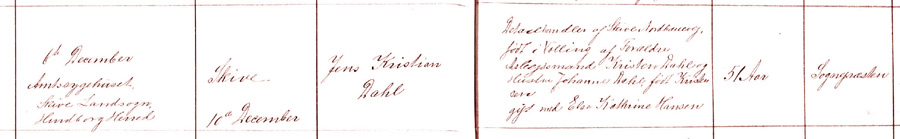 6te December
Amtssygehuset,
Skive Landsogn,
Hindborg Herred
Skive
10de December
Jens Kristian
Dahl
Detailhandler af Skive Nordbanevej,
født i Volling af Forældre
Arbejdsmand Kristen Dahl og
Hustru Johanne Dahl, født Kristen
sen
gift med Else Kathrine Hansen
51 Aar
Sognepræsten